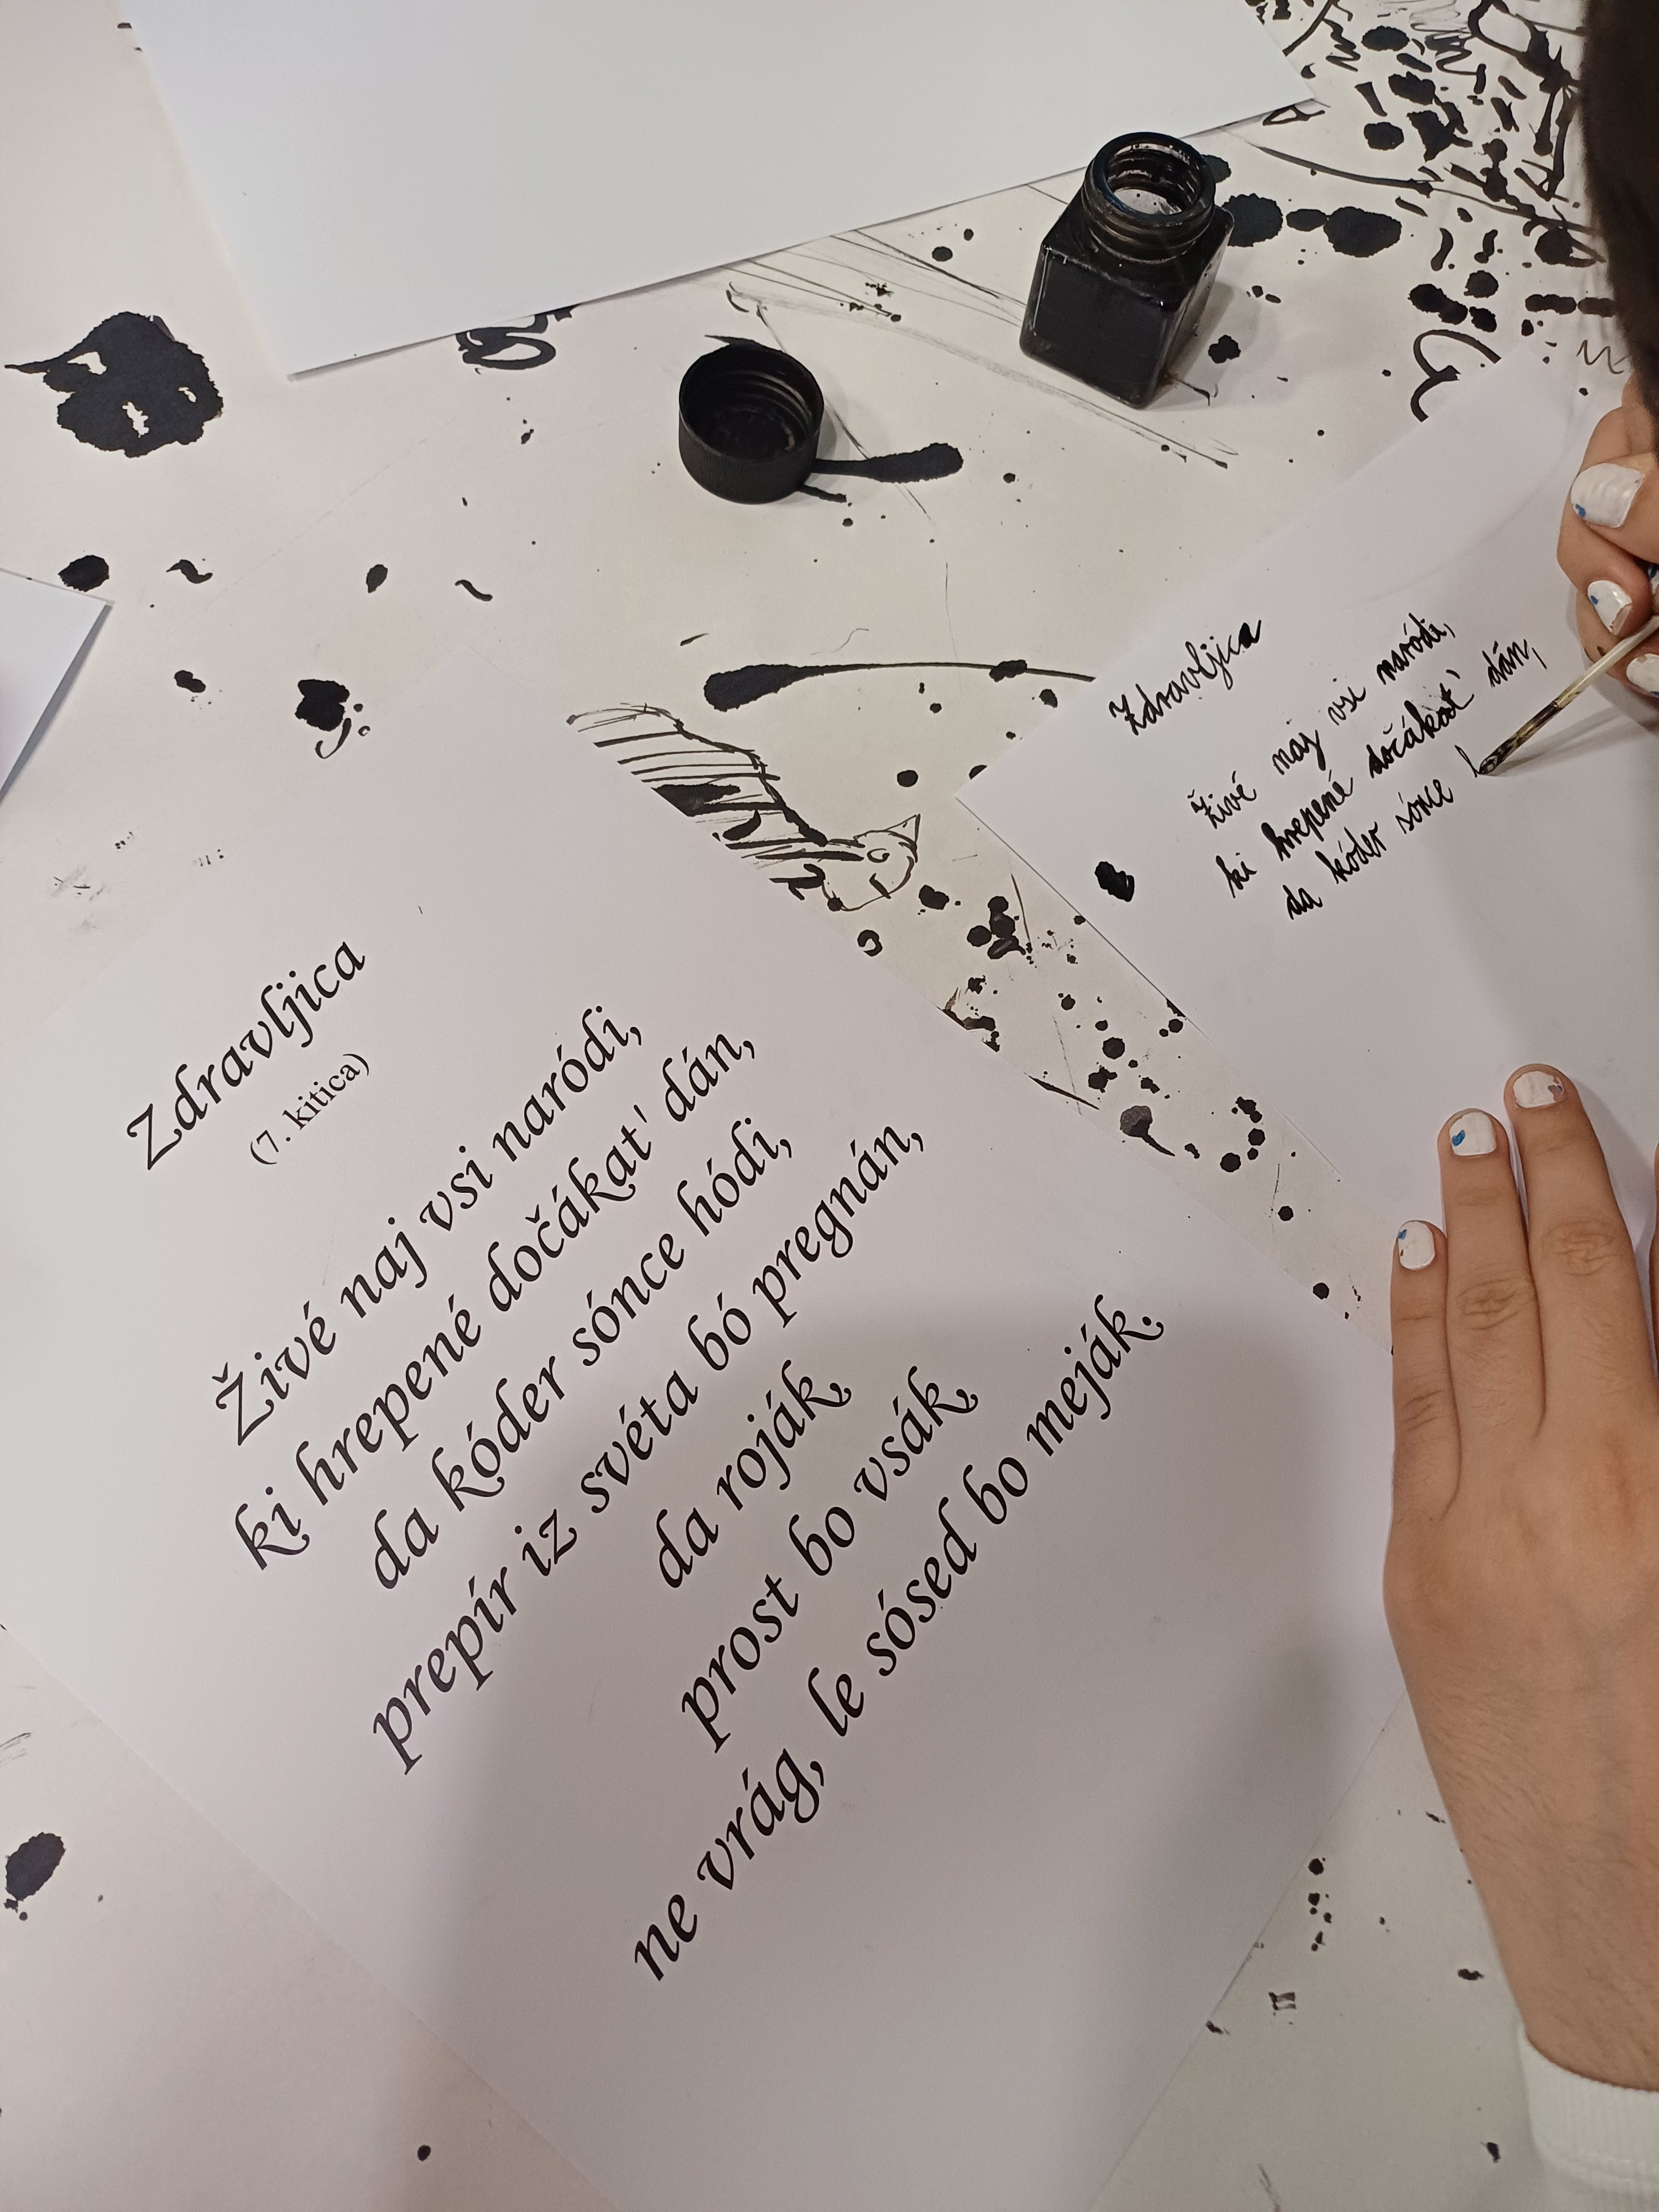 Zdravljica
(7. kitica)
Živé naj vsi naródi,
ki hrepené dočákat' dán,
da kóder sónce hódi,
prepír iz svéta bó pregnán,
da roják
prost bo vsák,
ne vrág, le sósed bo meják.
Zdravljica
Živé naj vsi naródi,
ki hrepené dočákat' dán,
da kóder sónce